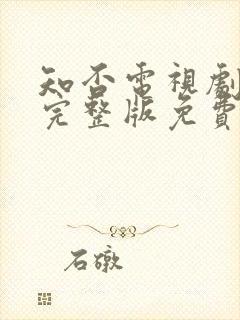 知否電視劇
完整版免費
石礅